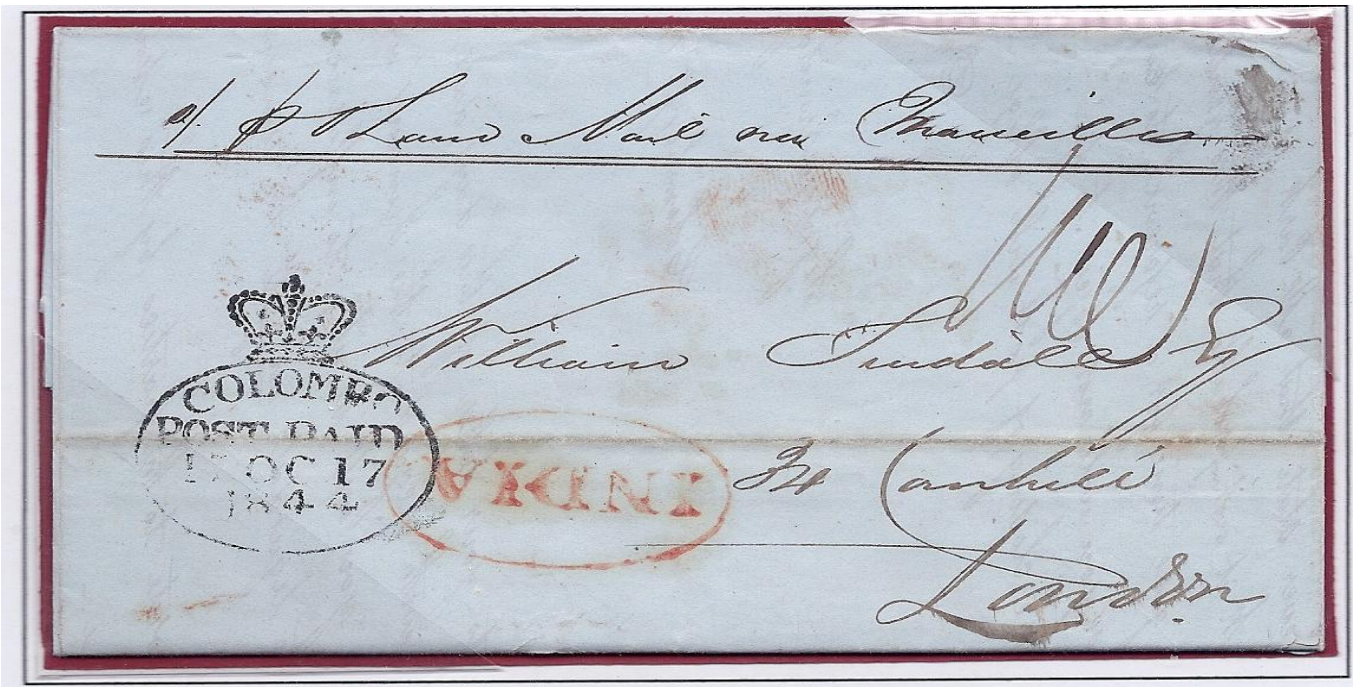 Land Mail via Marseilles
William Tindall Esq
34 Cornhill
London
COLOMBO
POST PAID
OC 17
1844
INDIA